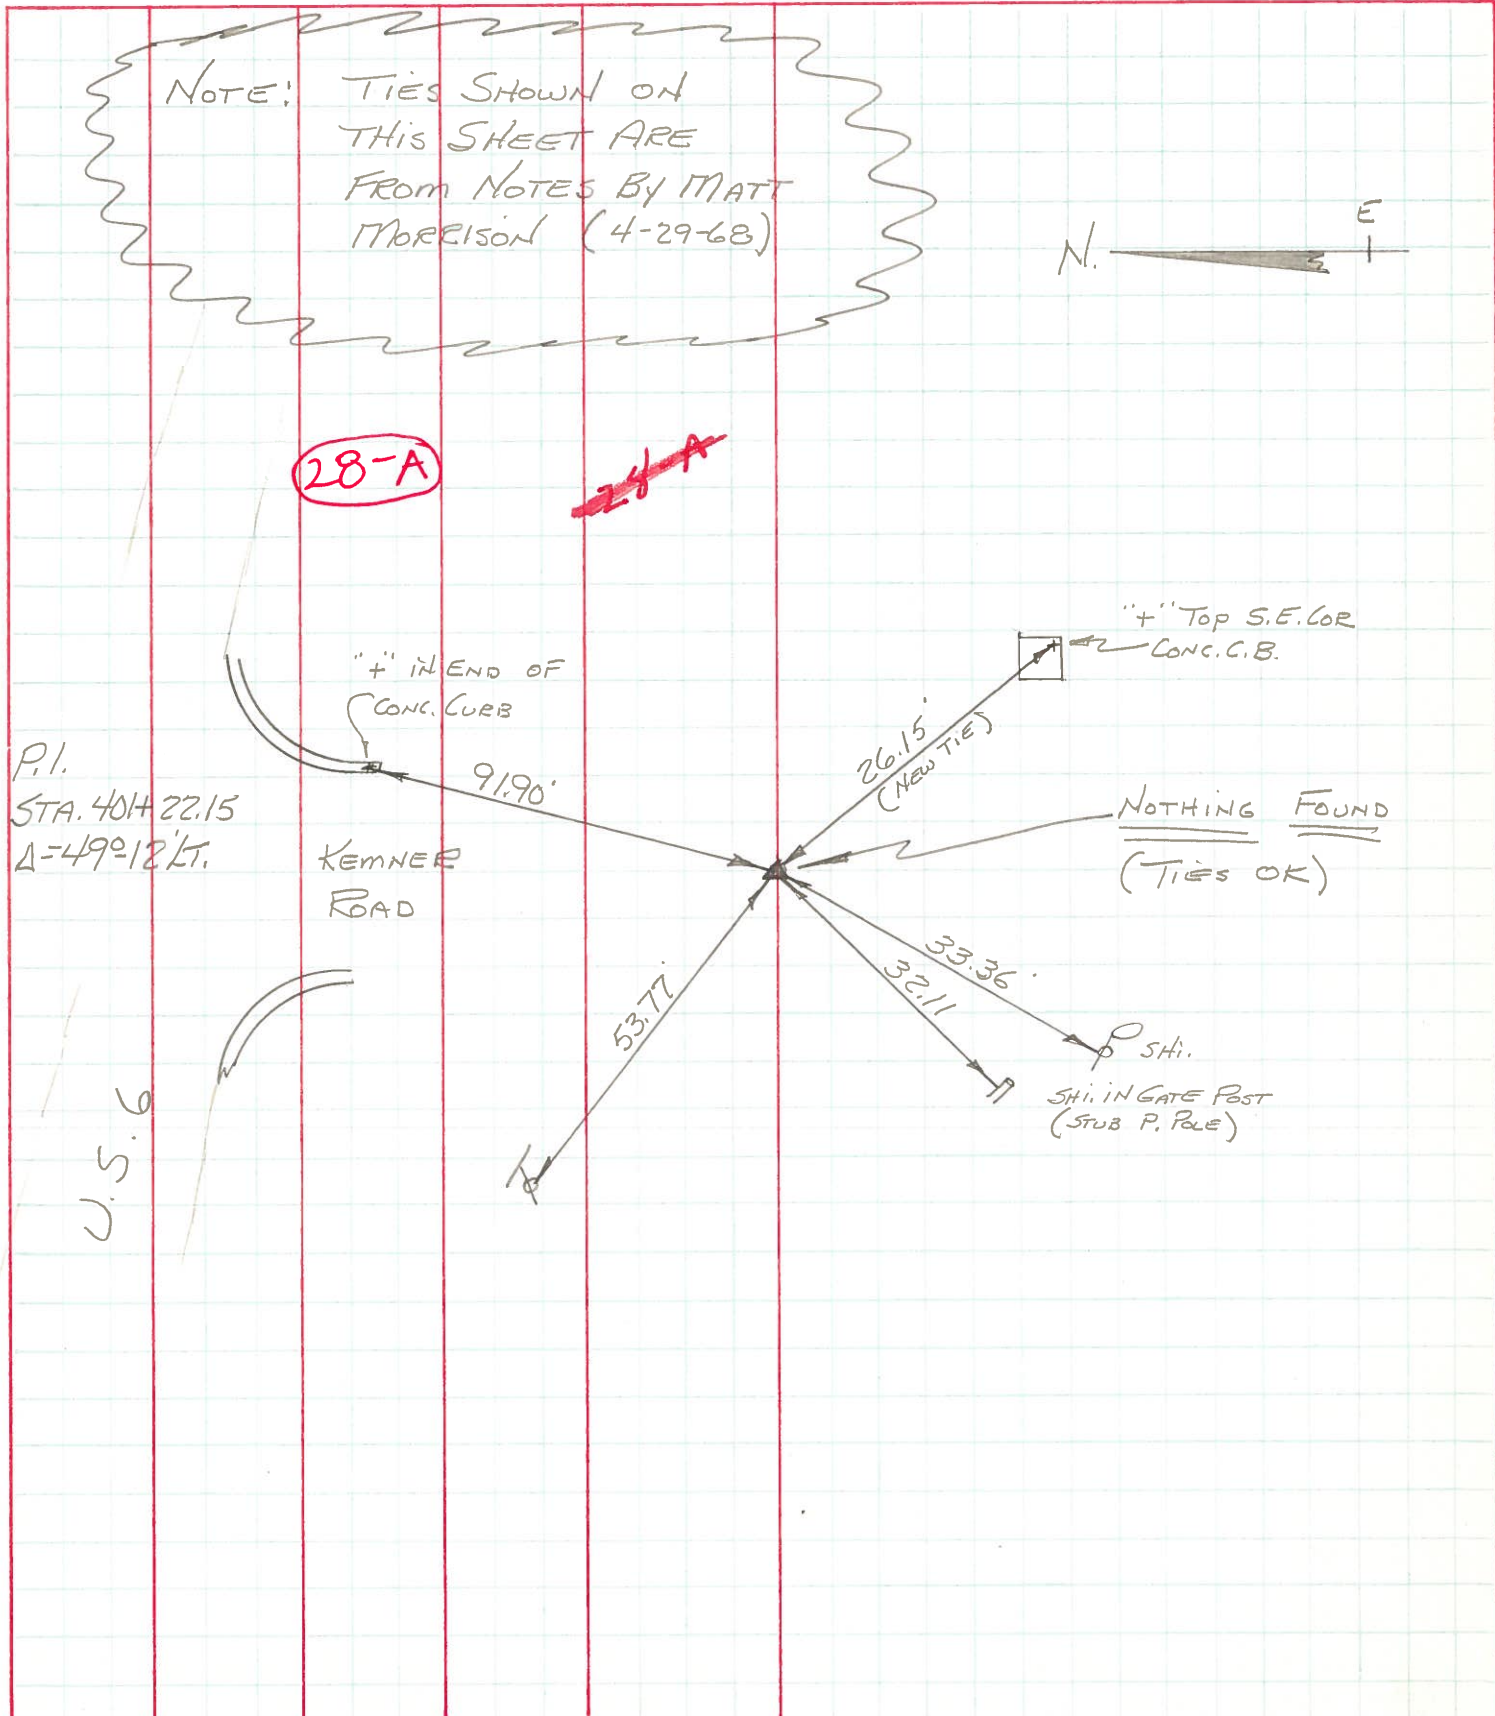 NOTE: TIES SHOWN ON
THIS SHEET ARE
FROM NOTES BY MATT
MORRISON (4-29-68)
N.
E
28-A
28-A
"+" TOP S.E. COR
CONC. C.B.
"+" IN END OF
CONC. CURB
26.15'
(NEW TIE)
91.90'
P.I.
STA. 401+22.15
Δ=49°-12' LT.
NOTHING FOUND
(TIES OK)
KEMNER
ROAD
33.36'
32.11
53.77'
SHI.
SHI. IN GATE POST
(STUB P. POLE)
U.S. 6